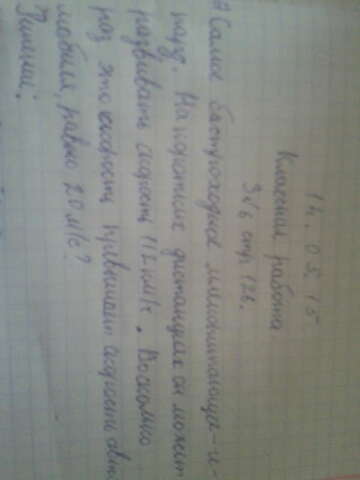 14. 05. 15
Класная работа
3√6 стр. 126.
Самое быстроходное млекопитающее-ге-
пард. На коротких дистанциях он может
развивать скорость 112 км/ч. Восколько
раз это скорость превышает скорость авто
мобиля, равно 20 м/с?